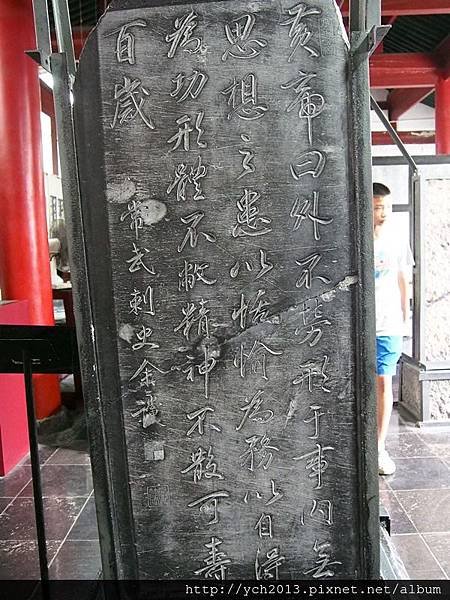 黃帝曰外不勞形于事內無
思想之患以恬愉為務以自得
為功形體不敝精神不散可壽
百歲
常武刺史余
http://ych2013.pixnet.net/album